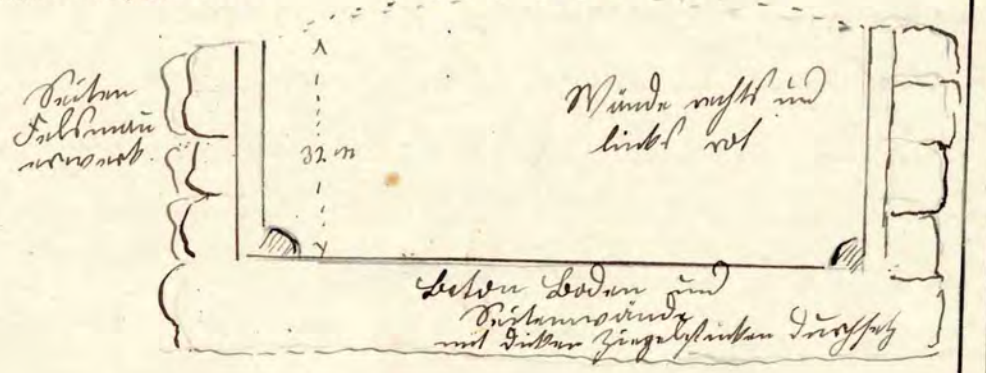 Seiten
Felsmau
erwerk.
32 m
Wände rechts und
links rot
Beton Boden und
Seitenwände
mit dicken Ziegelstücken durchsetz